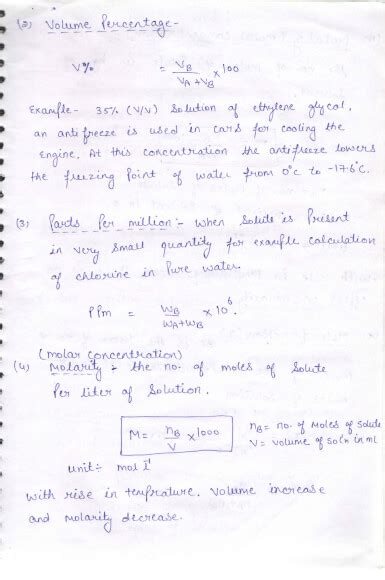 (2) Volume Percentage -
V% = V_B / V_A + V_B × 100
Example - 35% (V/V) Solution of ethylene glycol,
an antifreeze is used in cars for cooling the
Engine. At this concentration the antifreeze lowers
the freezing point of water from 0°C to -17.6°C.
(3) Parts Per million :- When Solute is Present
in very small quantity for example calculation
of chlorine in Pure water.
PPm = W_B / W_A+W_B × 10^6.
(molar concentration)
(4) Molarity :- the no. of moles of Solute
Per liter of Solution.
M = n_B / V × 1000
n_B = no. of Moles of Solute
V = volume of soln in ml
unit :- mol l^-1
with rise in temprature. Volume increase
and molarity decrease.